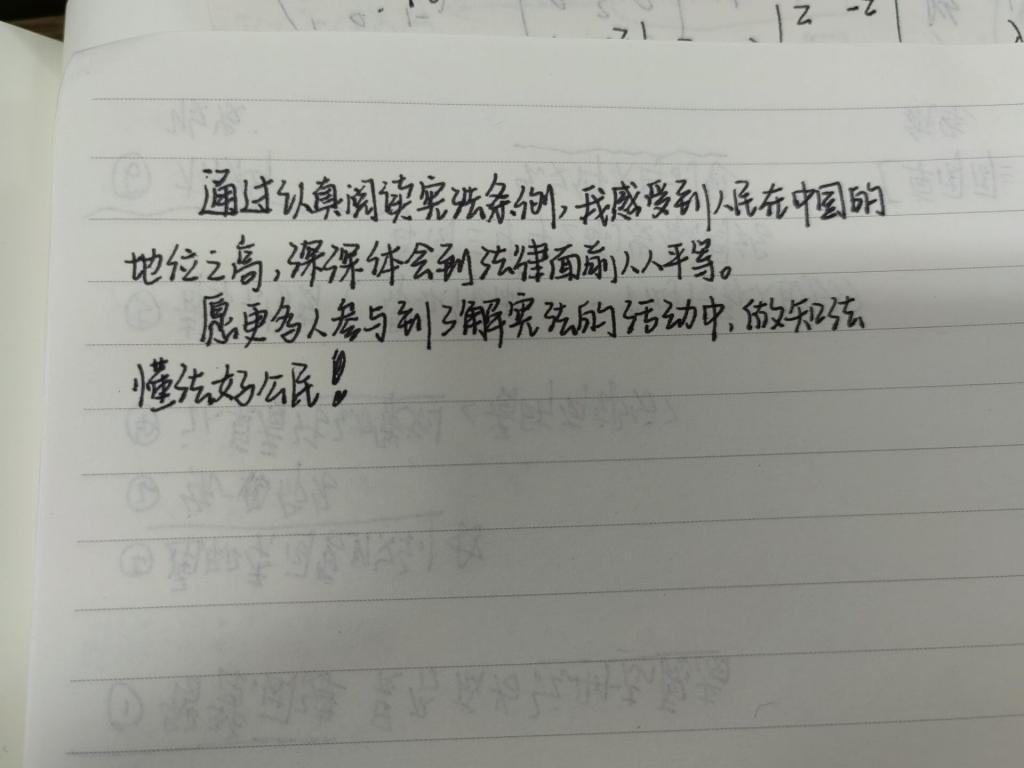 通过认真阅读宪法条例,我感受到人民在中国的
地位之高,深深体会到法律面前人人平等。
愿更多人参与到了解宪法的活动中,做知法
懂法好公民!